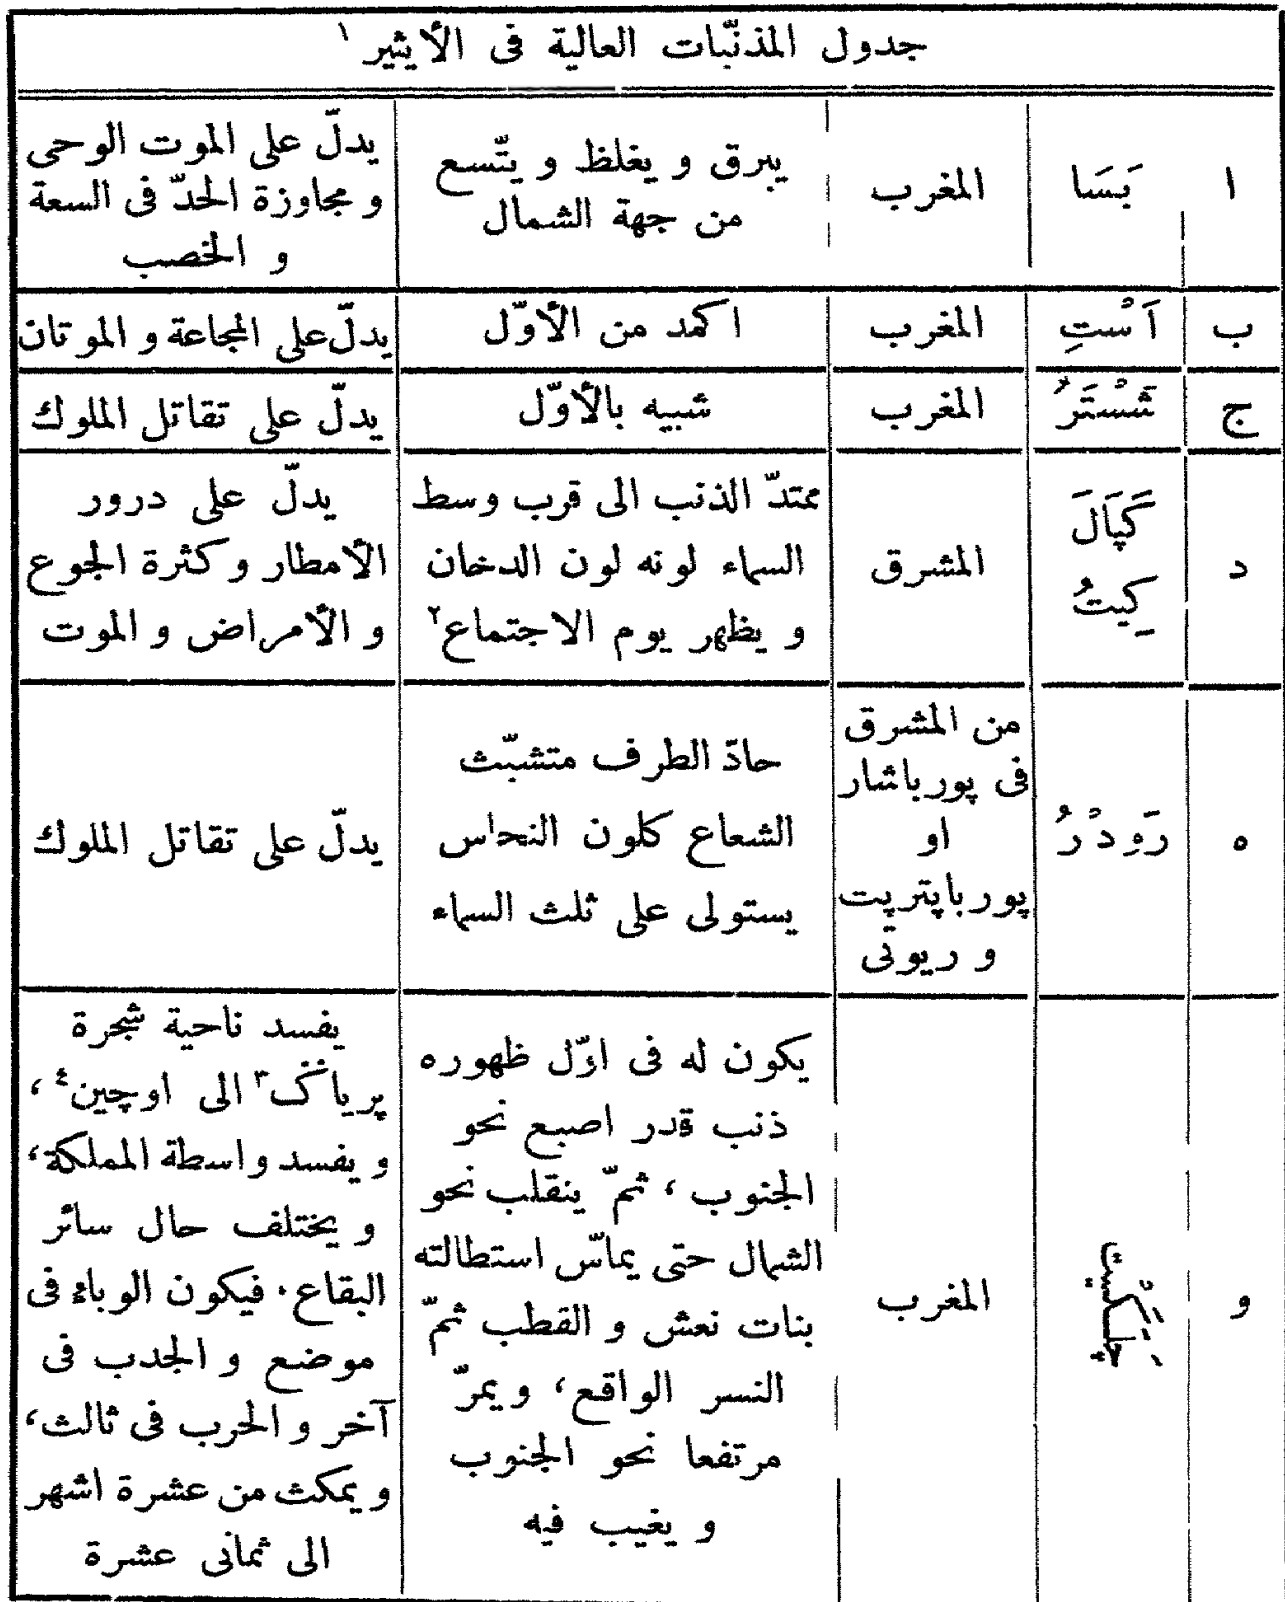 جدول المذنّبات العالية فى الأيثير ١
ا
بَسَا
المغرب
يبرق و يغلظ و يتّسع
من جهة الشمال
يدلّ على الموت الوحى
و مجاوزة الحدّ فى السعة
و الخصب
ب
اَسْتِ
المغرب
اكمد من الأوّل
يدلّ على المجاعة و الموتان
ج
شَسْتَرُ
المغرب
شبيه بالأوّل
يدلّ على تقاتل الملوك
د
كَپَالَ
كِيتُ
المشرق
ممتدّ الذنب الى قرب وسط
السماء لونه لون الدخان
و يظهر يوم الاجتماع ٢
يدلّ على درور
الأمطار و كثرة الجوع
و الأمراض و الموت
ه
رَوِدْرُ
من المشرق
فى پورباشار
او
پورباپتريت
و ريوتى
حادّ الطرف متشبّث
الشعاع كلون النحاس
يستولى على ثلث السماء
يدلّ على تقاتل الملوك
و
المغرب
يكون له فى اوّل ظهوره
ذنب قدر اصبع نحو
الجنوب ، ثمّ ينقلب نحو
الشمال حتى يماسّ استطالته
بنات نعش و القطب ثمّ
النسر الواقع ، و يمرّ
مرتفعا نحو الجنوب
و يغيب فيه
يفسد ناحية شجرة
پرياگ ٣ الى اوچين ٤ ،
و يفسد واسطة المملكة ،
و يختلف حال سائر
البقاع . فيكون الوباء فى
موضع و الجدب فى
آخر و الحرب فى ثالث ،
و يمكث من عشرة اشهر
الى ثمانى عشرة